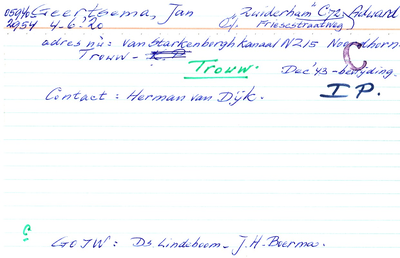 05940 Geertsema, Jan "Zuiderham" C72, Aduard
2954 4.6.'20 (Friesestraatweg)
adres nu: van Starkenborghkanaal NZ 15 Noordhorn.
Trouw -
Trouw. Dec '43 - bevrijding.
C
I P.
Contact: Herman van Dÿk.
GOIW: Ds Lindeboom - J.H. Boerma.